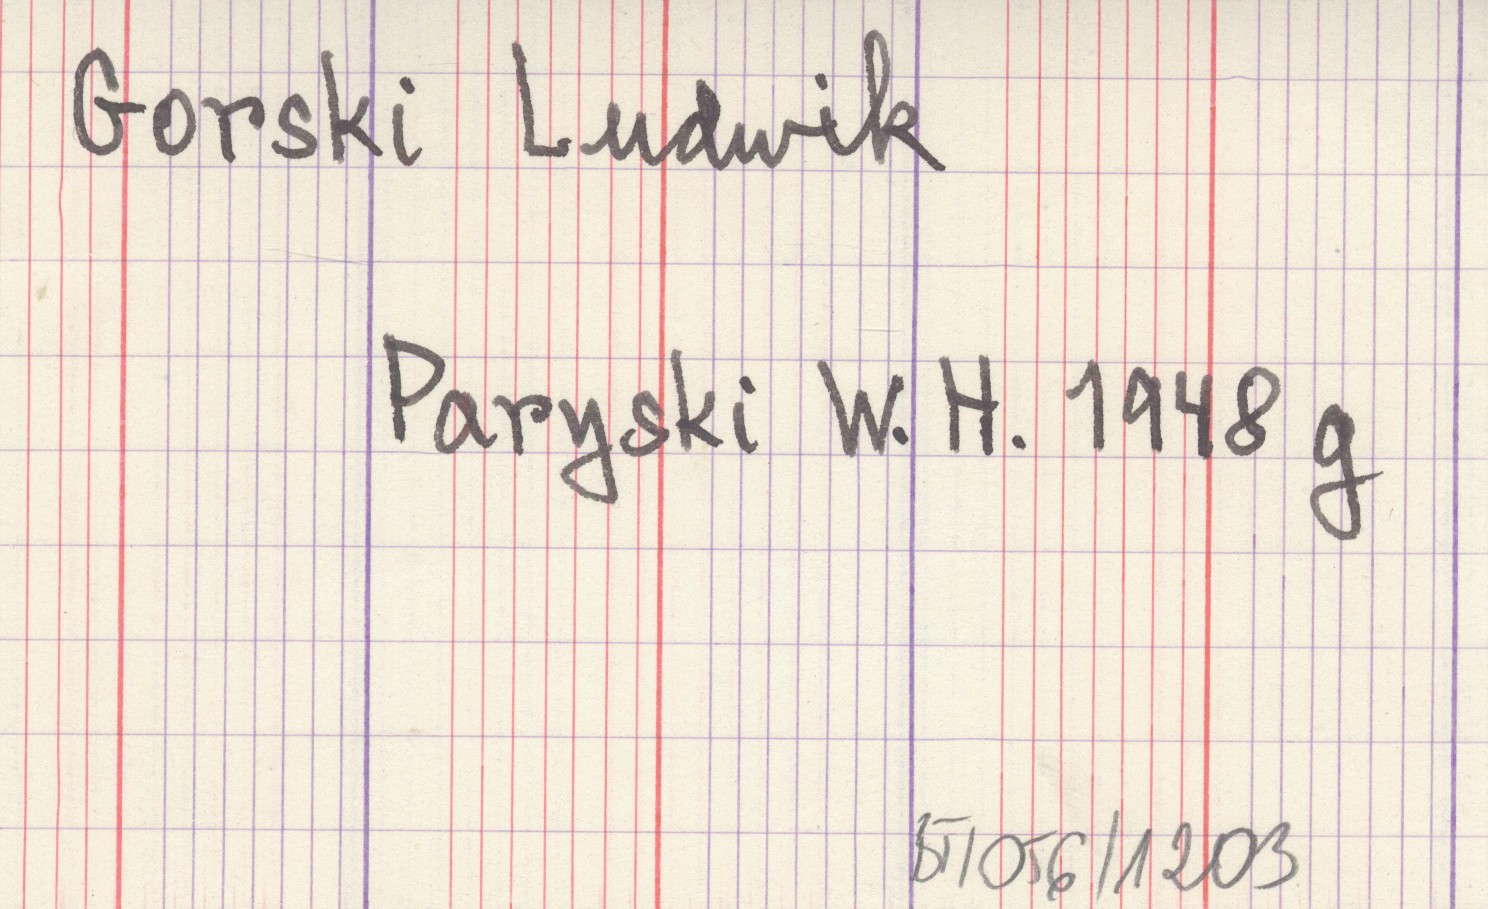 Gorski Ludwik
Paryski W. H. 1948 g
BT/056/1203